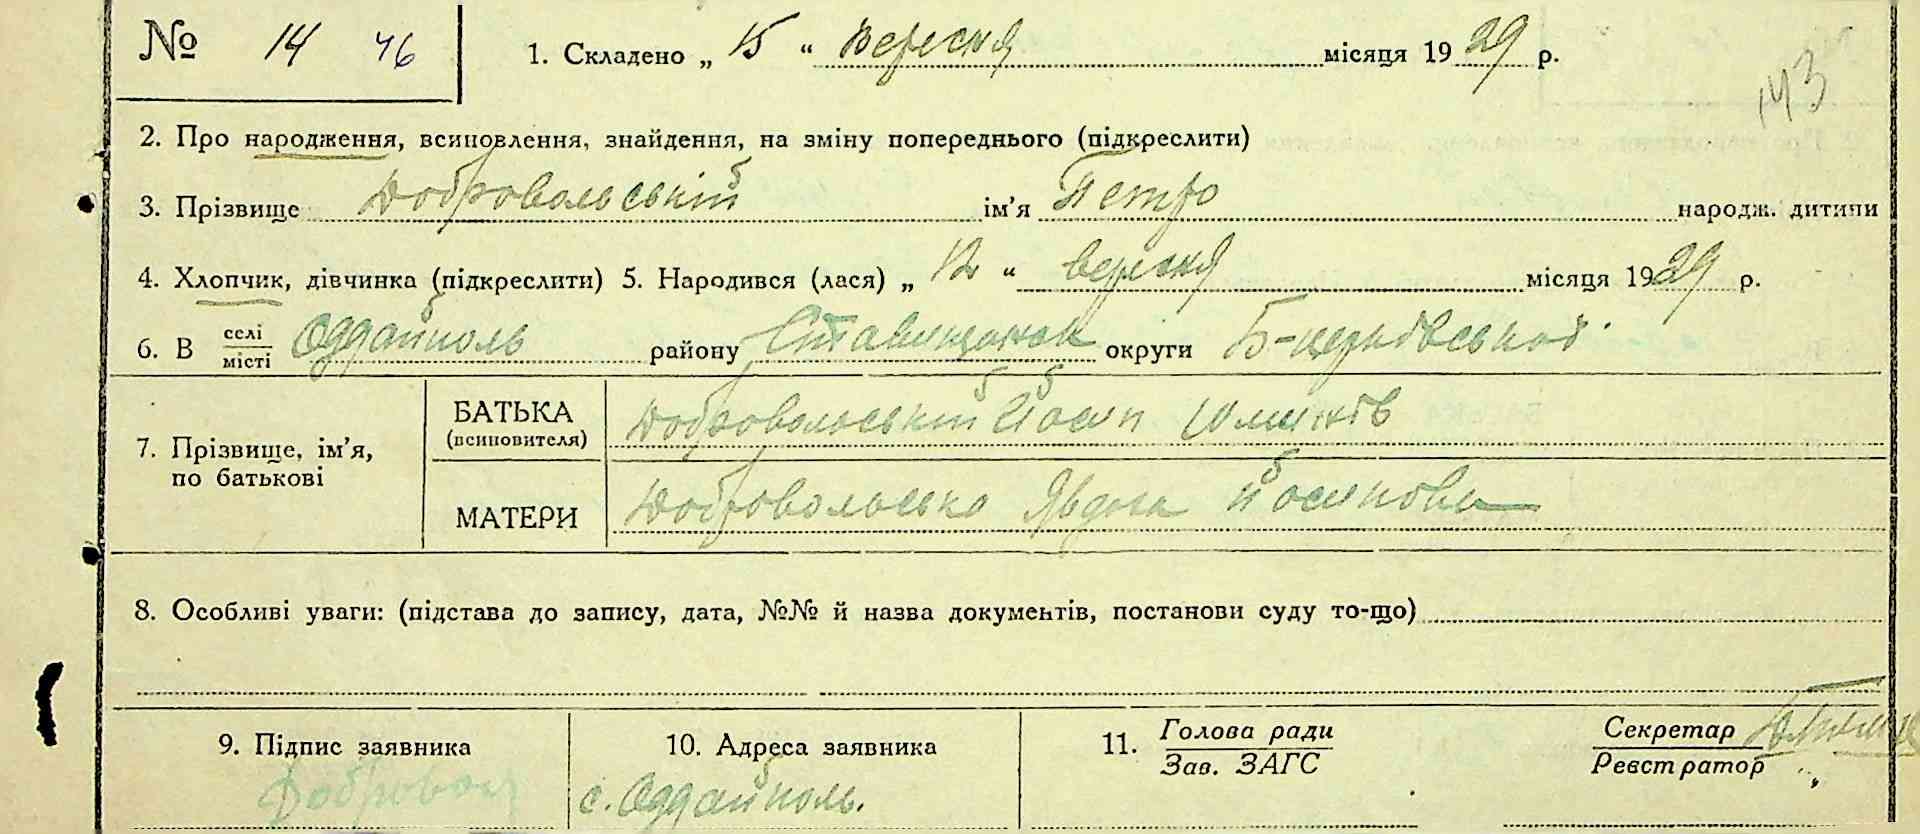 № 14 46 1. Складено „ 15 “ вересня місяця 1929 р.
143
2. Про народження, всиновлення, знайдення, на зміну попереднього (підкреслити)
3. Прізвище Добровольський ім'я Петро народж. дитини
4. Хлопчик, дівчинка (підкреслити) 5. Народився (лася) „ 12 “ вересня місяця 1929 р.
6. В селі місті Оддайполь району округи Б-церківської
7. Прізвище, ім'я, по батькові
БАТЬКА (всиновителя) Добровольський Йосип
МАТЕРИ Добровольська Явдоха Йосиповн
8. Особливі уваги: (підстава до запису, дата, №№ й назва документів, постанови суду то-що)
9. Підпис заявника 10. Адреса заявника 11. Голова ради Зав. ЗАГС Секретар Реєстратор
Добровол с. Оддайполь.